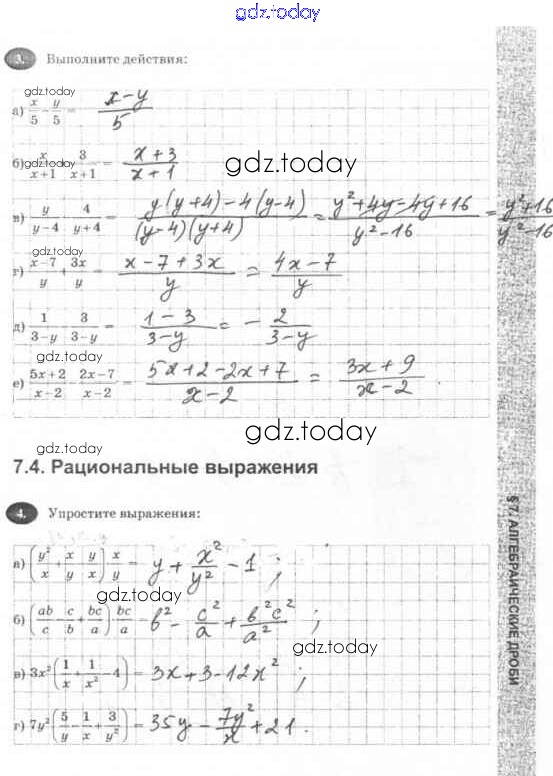 gdz.today
3. Выполните действия:
gdz.today
а) x/5 - y/5 = (x-y)/5
б) x/(x+1) + 3/(x+1) = (x+3)/(x+1)
gdz.today
gdz.today
в) y/(y-4) - 4/(y+4) = (y(y+4)-4(y-4))/((y-4)(y+4)) = (y²+4y-4y+16)/(y²-16) = (y²+16)/(y²-16)
gdz.today
г) (x-7)/y + 3x/y = (x-7+3x)/y = (4x-7)/y
д) 1/(3-y) - 3/(3-y) = (1-3)/(3-y) = -2/(3-y)
gdz.today
е) (5x+2)/(x-2) - (2x-7)/(x-2) = (5x+2-2x+7)/(x-2) = (3x+9)/(x-2).
gdz.today
gdz.today
7.4. Рациональные выражения
4. Упростите выражения:
а) (y²/x + x/y - y/x) · x/y = y + x²/y² - 1;
gdz.today
б) (ab/c - c/b + bc/a) · bc/a = b² - c²/a + b²c²/a²;
gdz.today
в) 3x²(1/x + 1/x² - 4) = 3x+3-12x²;
г) 7y²(5/y - 1/x + 3/y²) = 35y - 7y²/x + 21.
gdz.today
§ 7. АЛГЕБРАИЧЕСКИЕ ДРОБИ